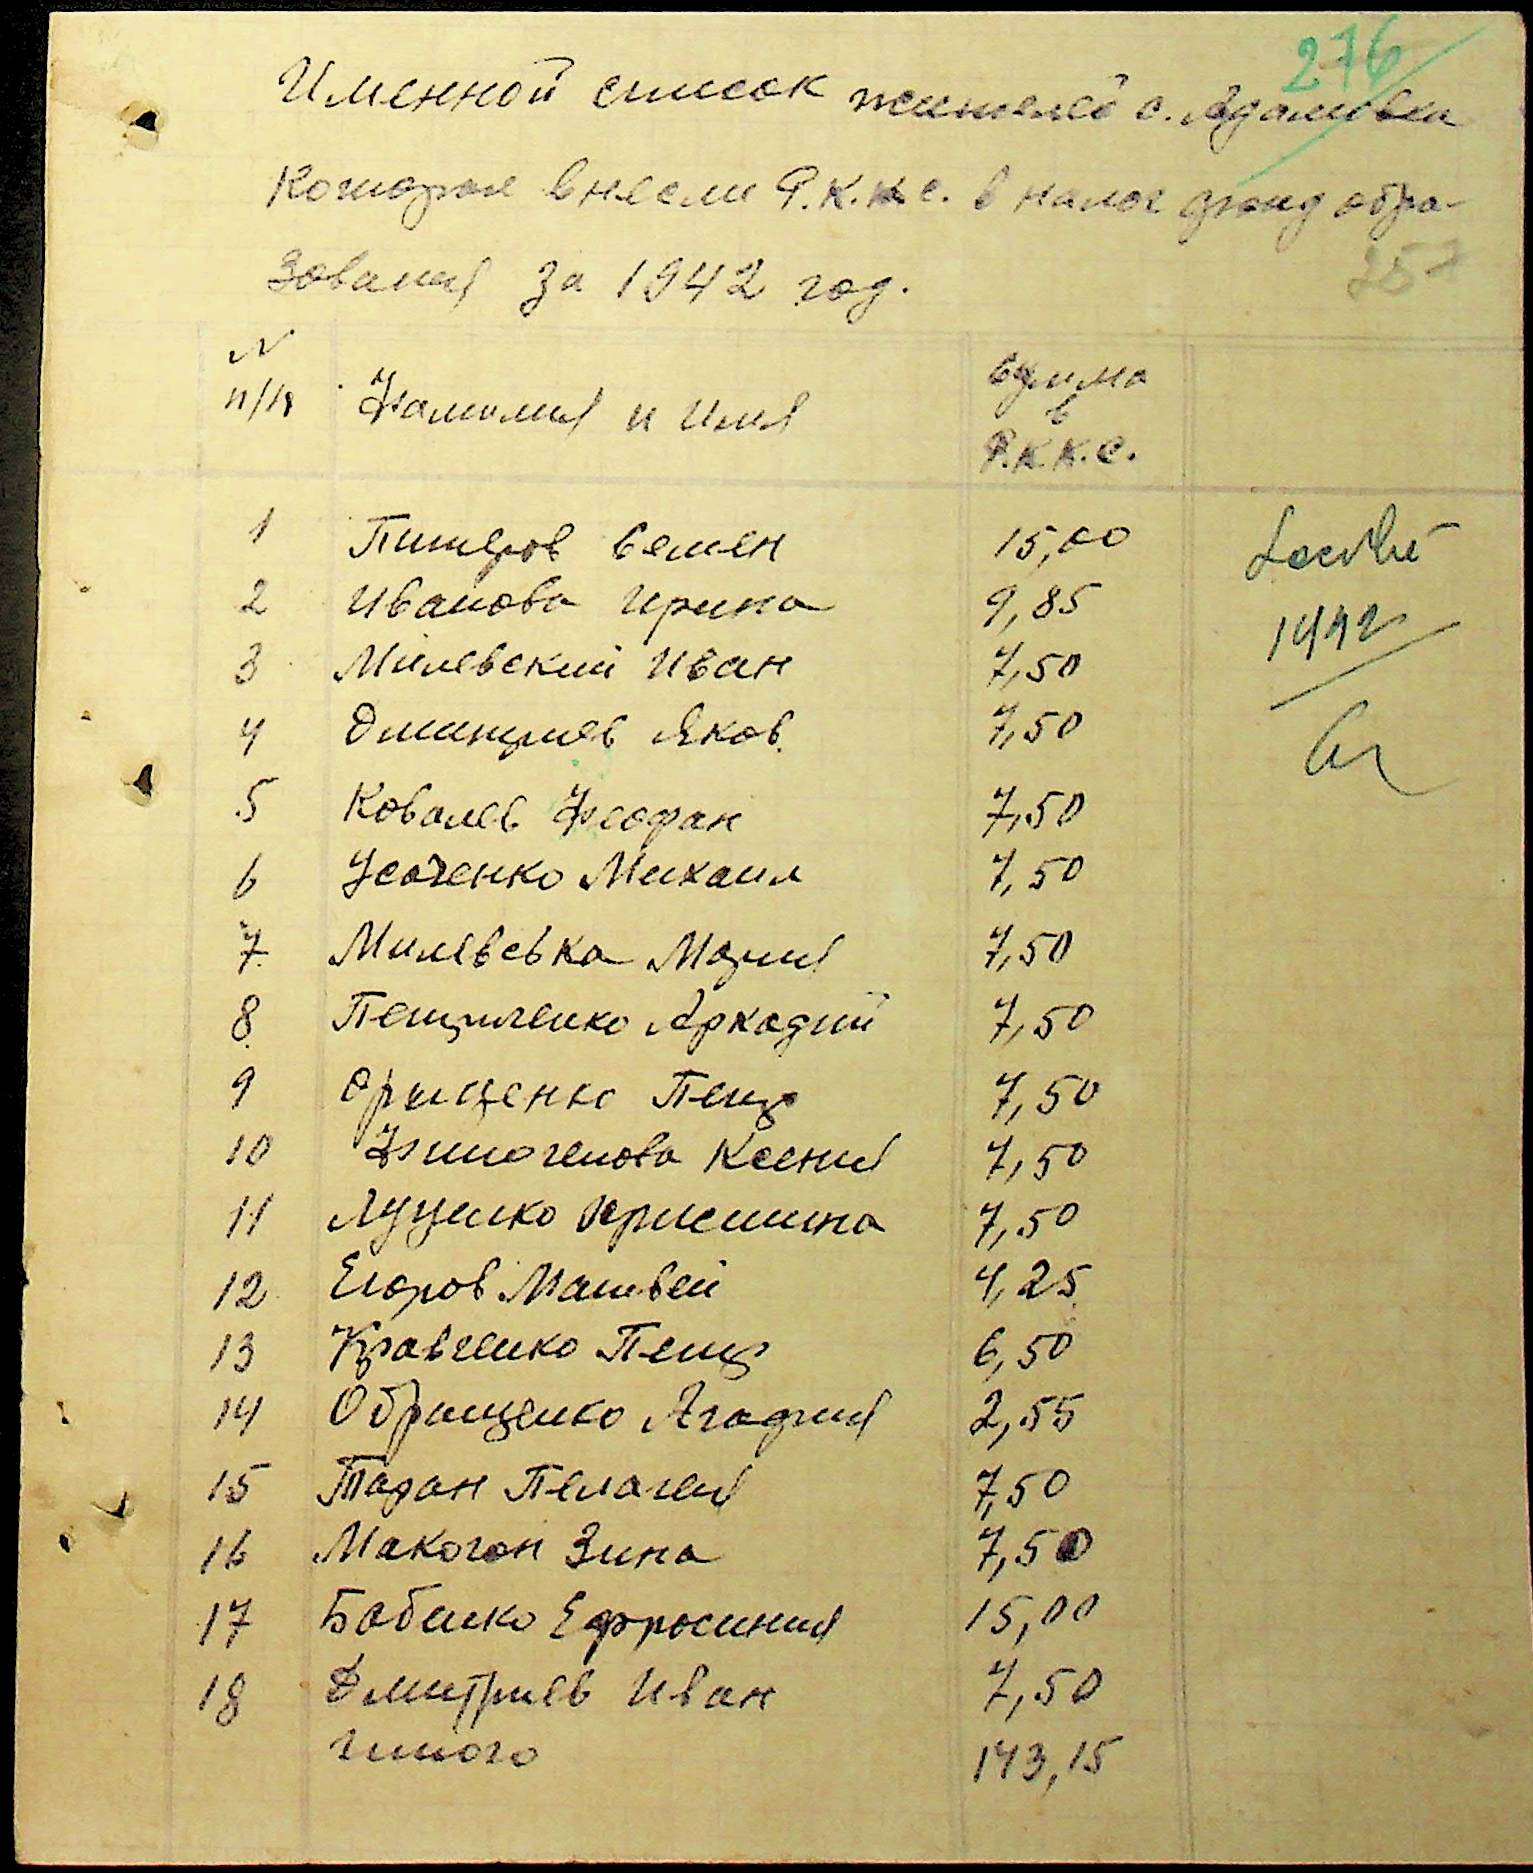 276
Именной список жителей с. Адамовка
Которые внесли Р.К.К.С. в налог фонд обра-
зования за 1942 год.
257
N
п/п Фамилия и Имя Сумма в Р.К.К.С.
1 Питеров Семен 15,00
2 Иванова Ирина 9,85
1942
3 Милевский Иван 7,50
4 Дмитриев Яков 7,50
5 Ковалев Феофан 7,50
6 Усаченко Михаил 7,50
7 Милевська Мария 7,50
8 Петриченко Аркадий 7,50
9 Орищенко Петр 7,50
10 Финогенова Ксения 7,50
11 Луценко Юристина 7,50
12 Егоров Матвей 4,25
13 Кравченко Петр 6,50
14 Обращенко Агафия 2,55
15 Таран Пелагея 7,50
16 Макогон Зина 7,50
17 Бабенко Ефросиния 15,00
18 Дмитриев Иван 7,50
Итого 143,15